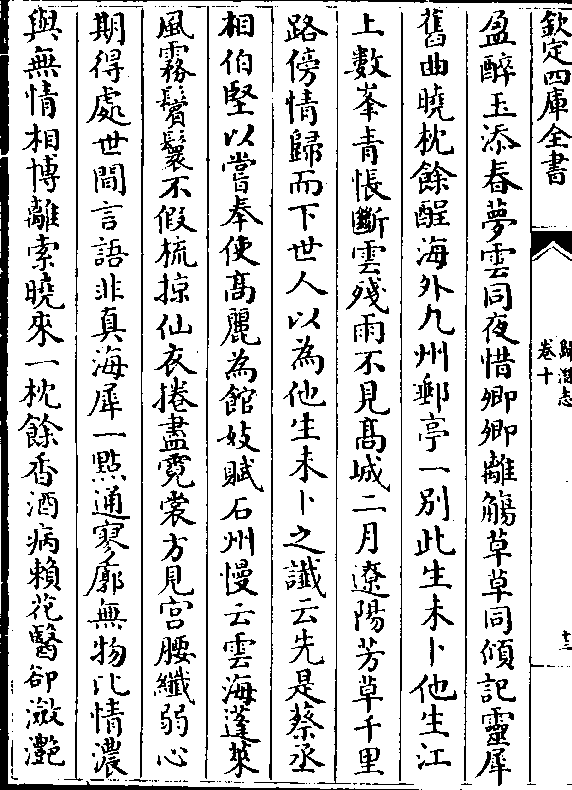 欽定四庫全書
歸潛志
卷十
十二
盈醉玉添春夢雲同夜惜卿卿離觴草草同傾記靈犀
舊曲曉枕餘酲海外九州郵亭一別此生未卜他生江
上數峯青悵斷雲殘雨不見髙城二月遼陽芳草千里
路傍情歸而下世人以為他生未卜之讖云先是蔡丞
相伯堅以嘗奉使髙麗為館妓賦石州慢云雲海蓬萊
風霧鬢鬟不假梳掠仙衣捲盡霓裳方見宫腰纖弱心
期得處世間言語非真海犀一點通寥廓無物比情濃
與無情相博離索曉來一枕餘香酒病賴花醫卻瀲灧